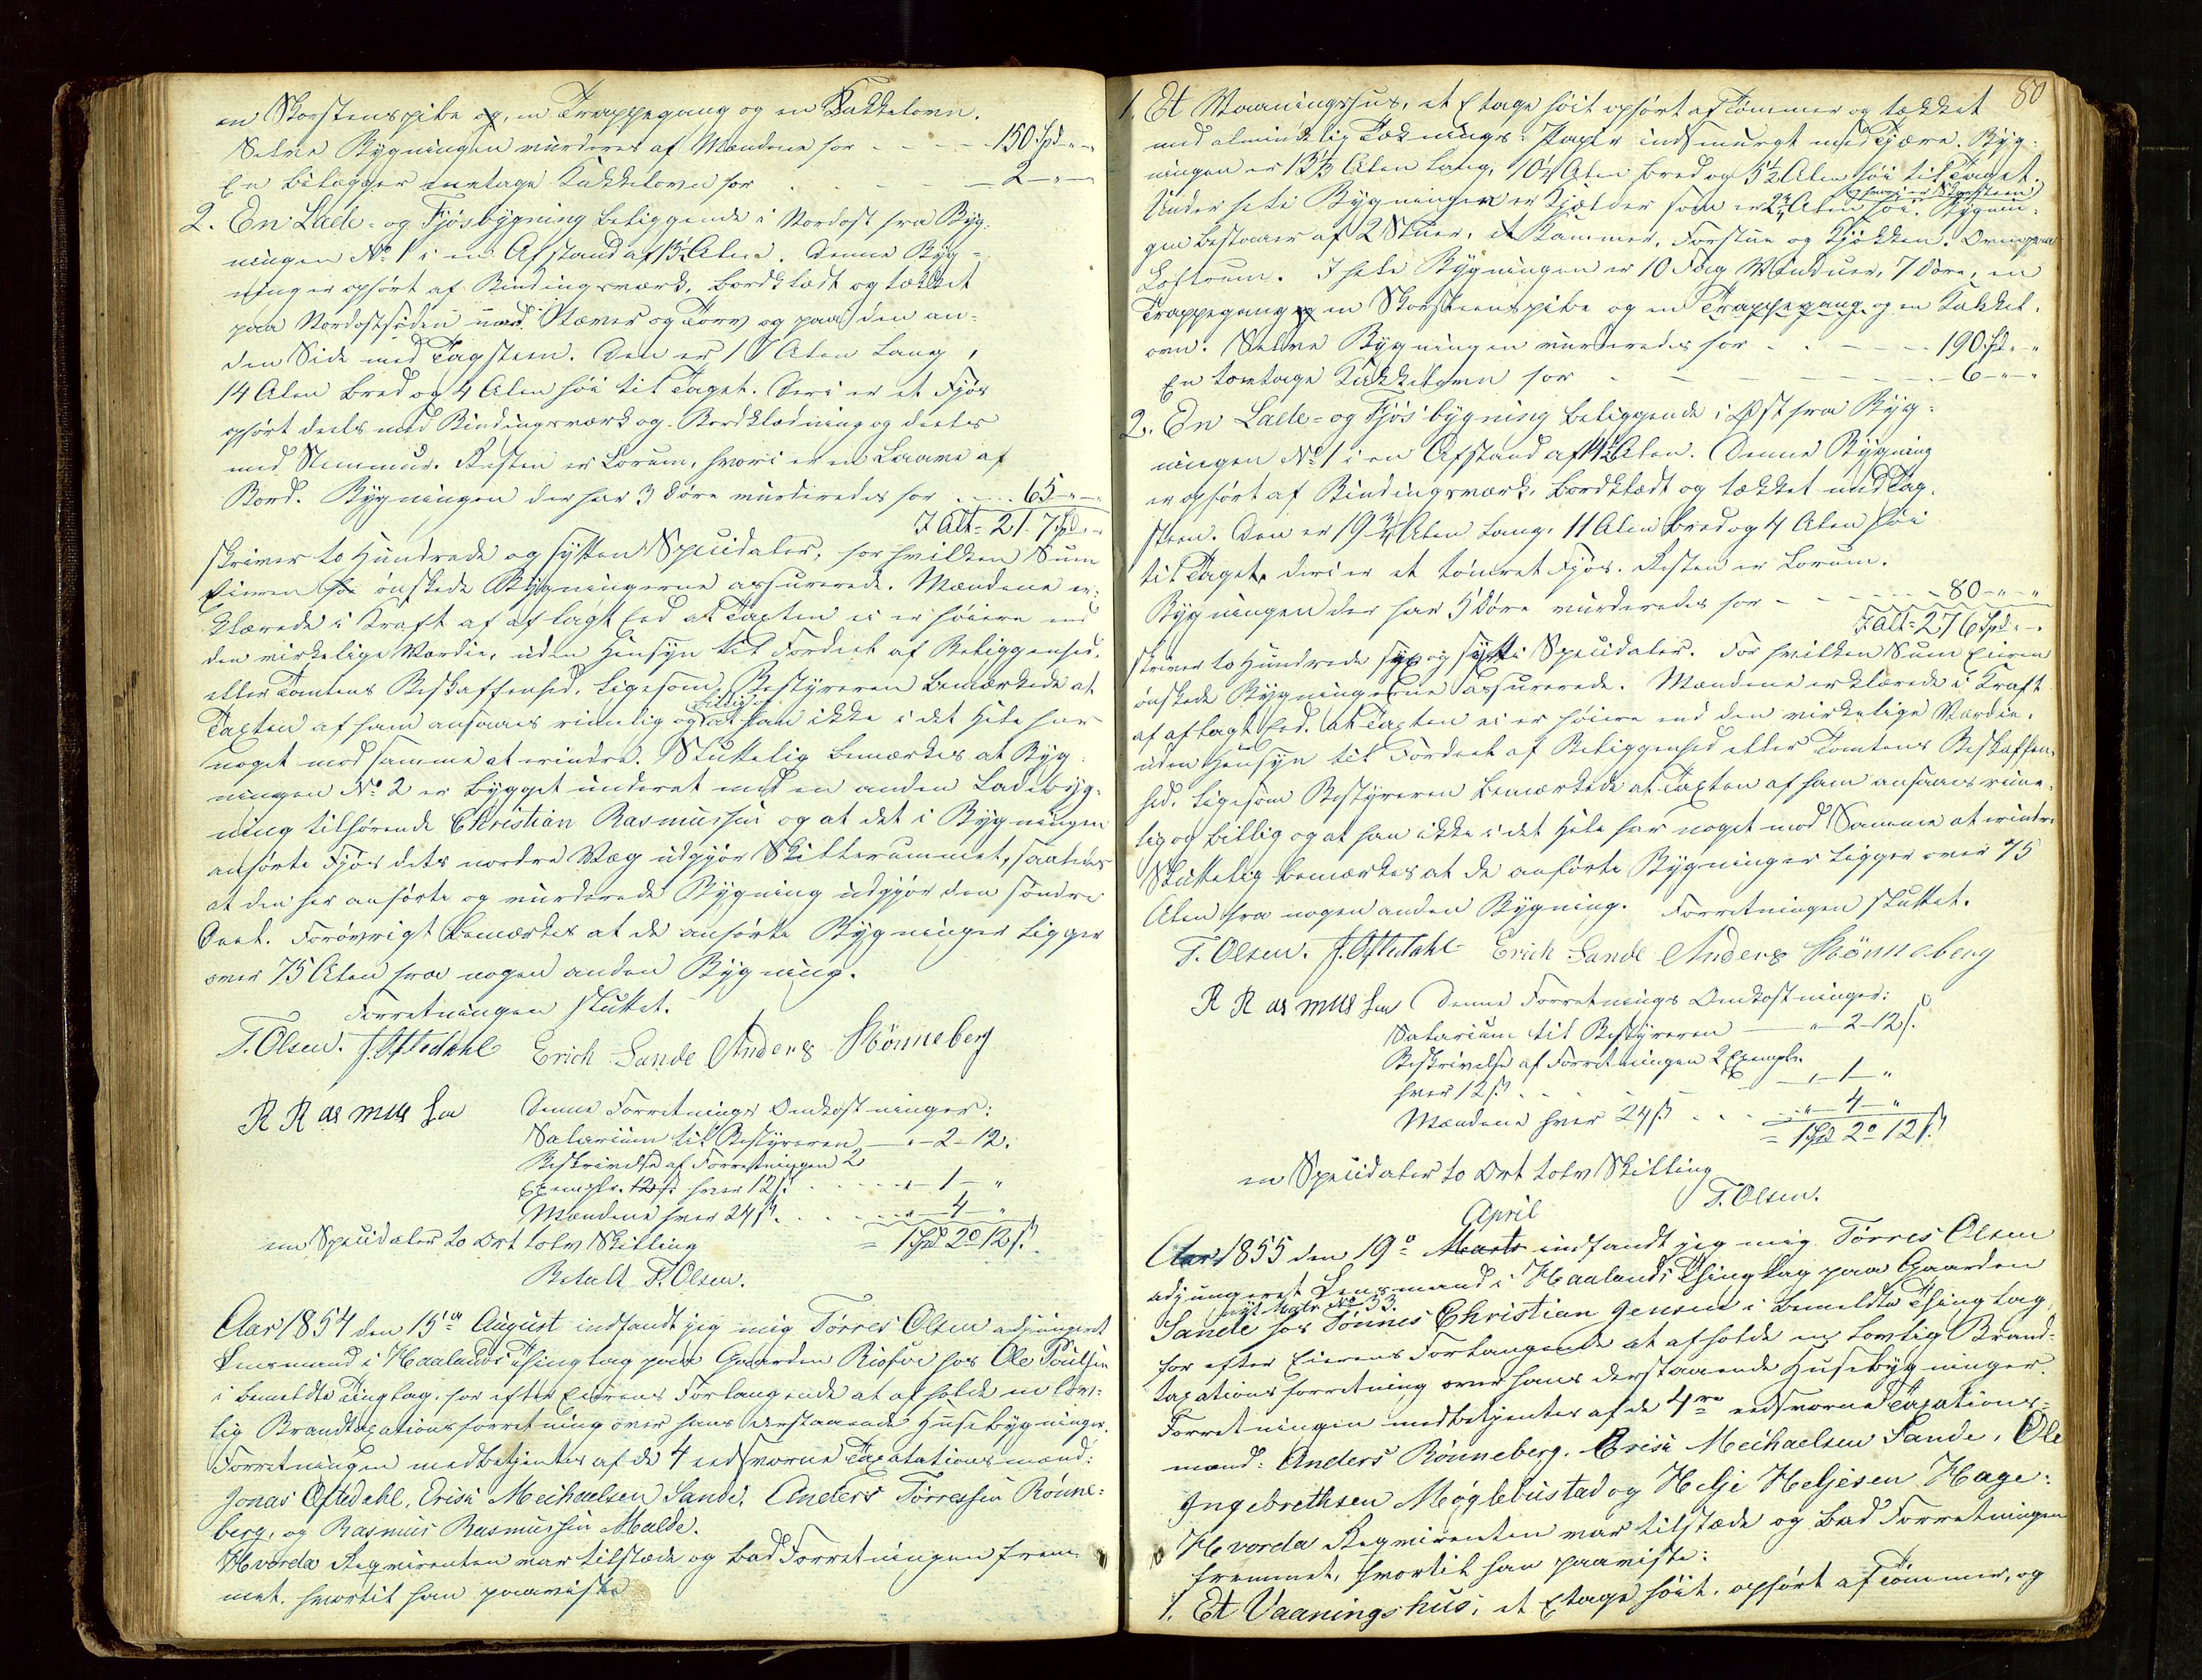 en Skorstenspibe og, en Trappegang og en Kakkelovn.
Selve Bygningen vurderes af Mændene for - - - - 150 Spd - "
En bilægger eenetages Kakkelovn for - - - - 2 - " -
2. En Lade- og Fjøsbygning beliggende i Nordost fra Byg-
ningen No 1 i en Afstand af 13½ Alen. Denne Byg-
ning er opført af Bindingsværk, bordklædt og tækket
paa Nordostsiden med Næver og Torv og paa den an-
den Side med Tagsteen. Den er 17 Alen lang,
14 Alen bred og 4 Alen høi til Taget. Deri er et Fjøs
opført deels med Bindingsværk og Bordklædning og deeles
med Steenmur. Resten er Lorum, hvori er en Laave af
Bord. Bygningen der har 3 Døre vurderedes for - - - 65 - " -
I Alt = 217 Spd - "
skriver to Hundrede og sytten Speciedaler, for hvilken Sum
Eieren ønskede Bygningerne assurerede. Mændene er-
klærede i Kraft af aflagt Eed at Taxten ei er høiere end
den virkelige Værdie, uden Hensyn til Fordeel af Beliggenhed,
eller Tomtens Beskaffenhed, ligesom Bestyreren bemærkede at
Taxten af ham ansaaes rimelig og billig og at han ikke i det Hele har
noget mod samme at erindre. Sluttelig bemærkes at Byg-
ningen No 2 er bygget underet med en anden Ladebyg-
ning tilhørende Christian Rasmussen og at det i Bygningen
anførte Fjøs dets nordre Væg udgjør Skillerummet, saaledes
at den her anførte og vurderede Bygning udgjør den søndre
Deel. Forøvrigt bemærkes at de anførte Bygninger ligger
over 75 Alen fra nogen anden Bygning.
Forretningen sluttet.
T. Olsen. J. Oftedahl Erich Sande Anders Rönneberg
R Rasmussen Denne Forretnings Omkostninger:
Salarium til Bestyreren - " - 2 - 12.
Beskrivelse af Forretningen 2
Exemplr. hver 12 s. - - - " - 1 - "
Mændene hver 24 s. - - - " - 4 - "
en Speciedaler to Ort tolv Skilling = 1 Spd 2 o 12 s.
Betalt T. Olsen.
Aar 1854 den 15de August indfandt jeg mig Tørres Olsen adjungeret
Lensmand i Haalands Thinglag paa Gaarden Risnes hos Ole Poulsen
i bemeldte Tinglag, for efter Eierens Forlangende at afholde en lov-
lig Brandtaxationsforretning over hans derstaaende Husebygninger.
Forretningen medbetjentes af de 4 eedsvorne Taxationsmænd:
Jonas Oftedahl, Erich Meichaelsen Sande, Anders Tørressen Rönne-
berg, og Rasmus Rasmussen Malde.
Hvorda Reqvirenten var tilstæde og bad Forretningen frem-
met, hvortil han paaviste
80
1. Et Vaaningshus, et Etage høit opført af Tømmer og tækket
med almindelig Tæknings-Papir indsmurgt med Tjære. Byg-
ningen er 13½ Alen lang, 10¼ Alen bred og 5½ Alen høi til Taget.
Under hele Bygningen er Kjælder som er 2¾ Alen høi, hvori er Skorsteen. Bygnin-
gen bestaaer af 2 Stuer, et Kammer, Forstue og Kjøkken. Ovenpaa
Loftrum. I hele Bygningen er 10 Fag Vinduer, 7 Døre, en
Trappegang og en Skorsteenspibe og en Trappegang og en Kakkel-
ovn. Selve Bygningen vurderedes for - - - - 190 Spd - "
En toetages Kakkelovn for - - - - 6 - " - "
2. En Lade- og Fjøsbygning beliggende i Øst fra Byg-
ningen No 1 i en Afstand af 14½ Alen. Denne Bygning
er opført af Bindingsværk, bordklædt og tækket med Tag-
steen. Den er 19¾ Alen lang, 11 Alen bred og 4 Alen høi
til Taget. Deri er et tømret Fjøs. Resten er Lorum.
Bygningen der har 5 Døre vurderedes for - - - - 80 - " - "
I alt = 276 Spd - "
skriver to Hundrede sex og sytti Speciedaler. For hvilken Sum Eieren
ønskede Bygningerne assurerede. Mændene erklærede i Kraft
af aflagt Eed, at Taxten ei er høiere end den virkelige Værdie,
uden Hensyn til Fordeel af Beliggenhed eller Tomtens Beskaffen-
hed, ligesom Bestyreren bemærkede at Taxten af ham ansaaes rime-
lig og billig og at han ikke i det Hele har noget mod Samme at erindre
Sluttelig bemærkes at de anførte Bygninger ligger over 75
Alen fra nogen anden Bygning. Forretningen sluttet.
T. Olsen. J. Oftedahl Erich Sande Anders Rönneberg
R Rasmussen Denne Forretnings Omkostninger:
Salarium til Bestyreren - " - 2 - 12 s.
Beskrivelse af Forretningen 2 Exemplr.
hver 12 s. - - - " - 1 - "
Mændene hver 24 s. - - - " - 4 - "
= 1 Spd 2 o 12 s.
en Speciedaler to Ort tolv Skilling
T. Olsen.
April
Aar 1855 den 19de Marts indfandt jeg mig Tørres Olsen
adjungeret Lensmand i Haalands Thinglag paa Gaarden
nyt Matr. No 33.
Sande hos Tönnes Christian Jensen i bemeldte Thinglag
for efter Eierens Forlangende at afholde en lovlig Brand-
taxationsforretning over hans derstaaende Husebygninger.
Forretningen medbetjentes af de 4re eedsvorne Taxations-
mænd: Anders Rönneberg, Erich Meichaelsen Sande, Ole
Ingebrethsen Møglebustad og Helje Heljesen Hage:
Hvorda Reqvirenten var tilstæde og bad Forretningen
fremmet, hvortil han paaviste:
1. Et Vaaningshus, et Etage høit, opført af Tømmer, og